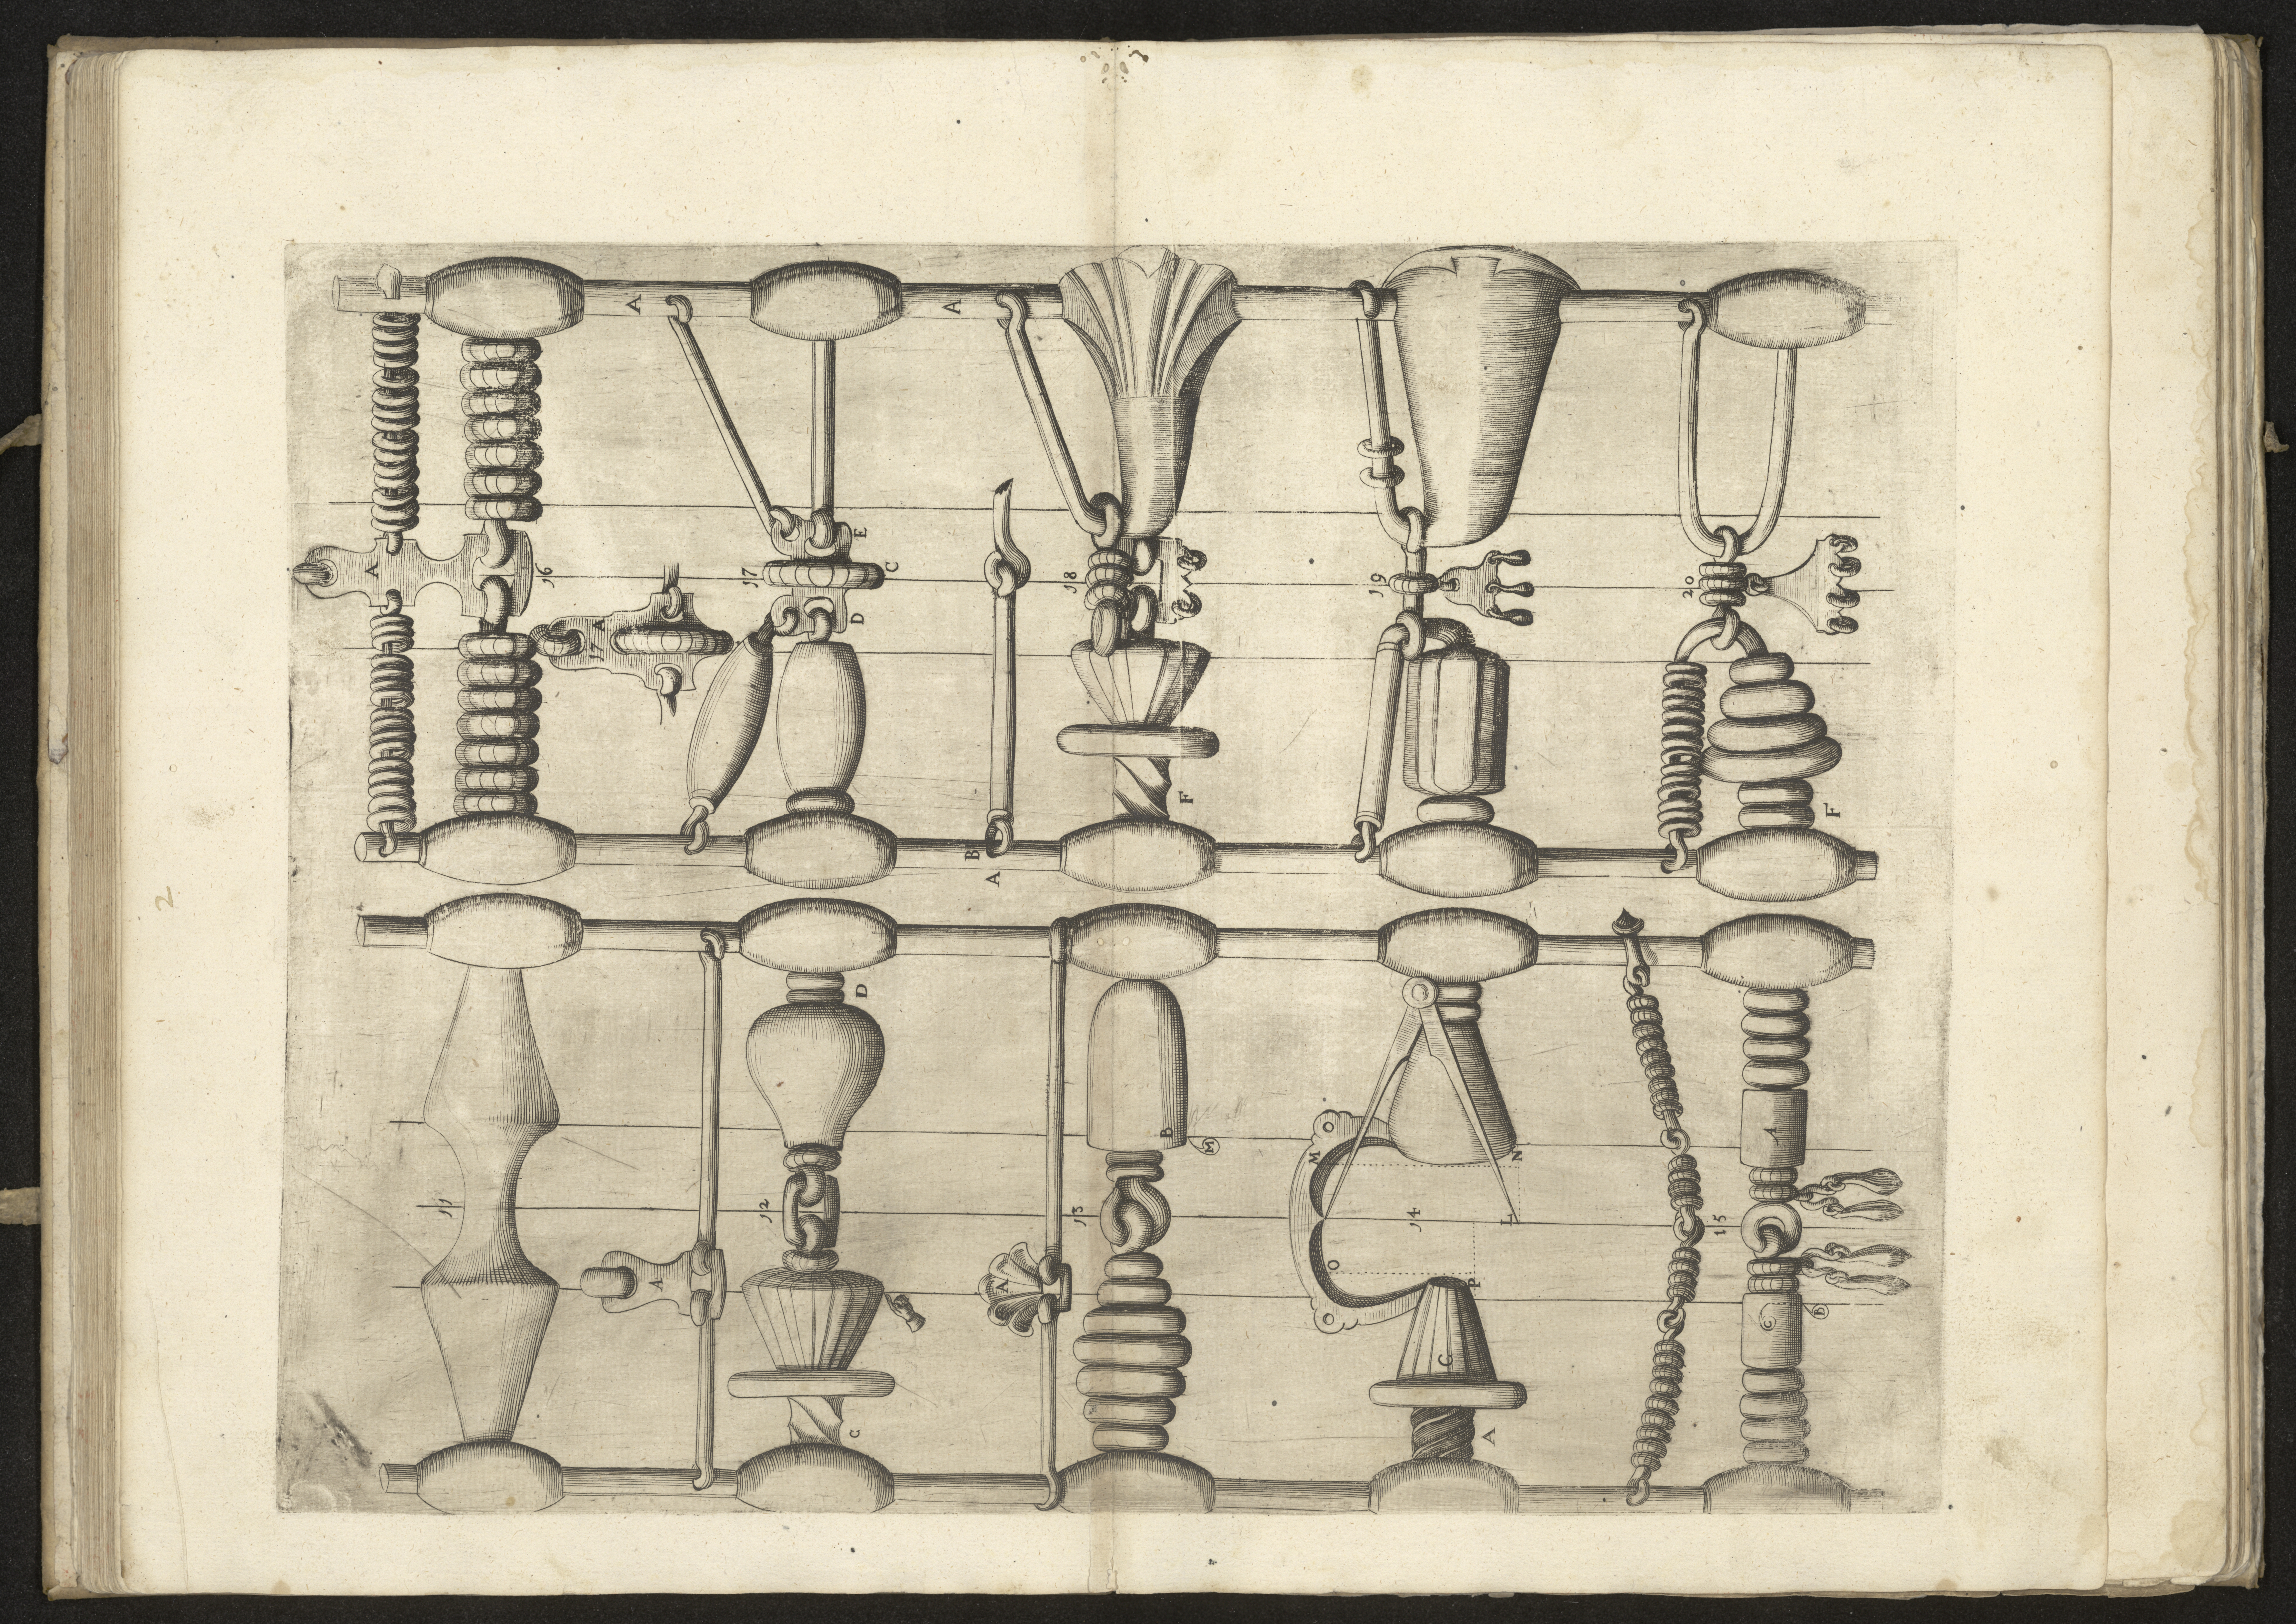 2
A
16
17 A
A
17
E
C
D
A
B
A
18
F
19
20
F
11
A
12
D
C
A
13
B
M
M
N
14
L
O
P
C
A
15
A
C
B